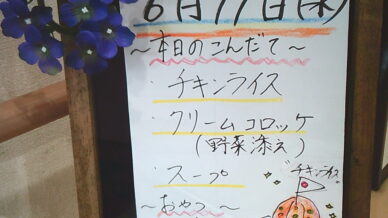 6月17日(木)
～本日のこんだて～
チキンライス
・クリームコロッケ
(野菜添え)
・スープ
～おやつ～
チキンライス